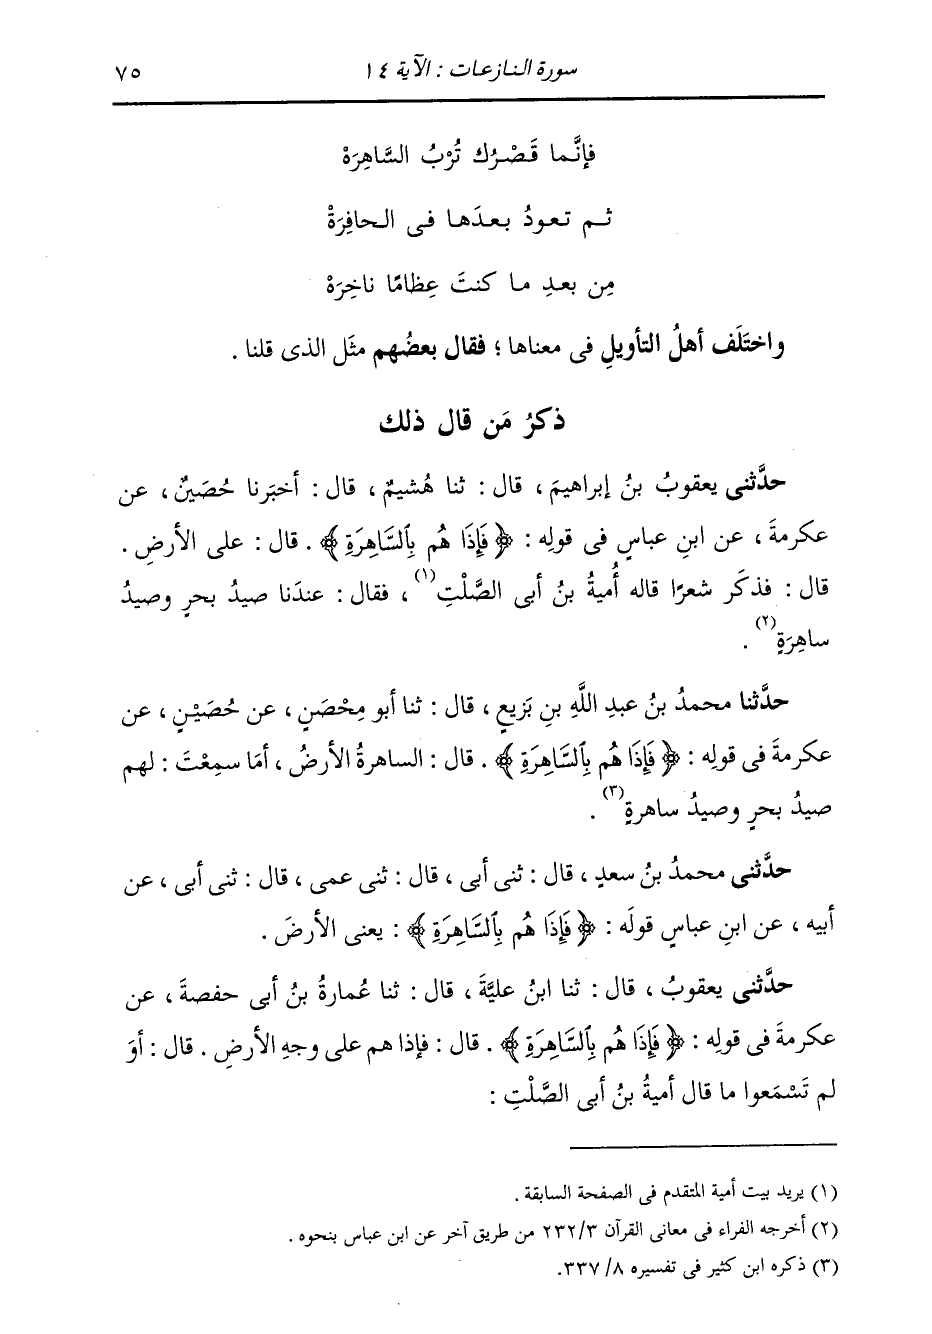 سورة النازعات : الآية ١٤
٧٥
فإنَّما قَصْرُك تُرْبُ السَّاهِرَهْ
ثم تعودُ بعدَها فى الحافِرَهْ
مِن بعدِ ما كنتَ عِظامًا ناخِرَهْ
واختَلَف أهلُ التأويلِ فى معناها ؛ فقال بعضُهم مثَل الذى قلنا .
ذكرُ مَن قال ذلك
حدَّثنى يعقوبُ بنُ إبراهيمَ ، قال : ثنا هُشيمٌ ، قال : أخبَرنا حُصَينٌ ، عن
عكرمةَ ، عن ابنِ عباسٍ فى قولِه : ﴿ فَإِذَا هُم بِٱلسَّاهِرَةِ ﴾ . قال : على الأرضِ .
قال : فذكَر شعرًا قاله أُميةُ بنُ أبى الصَّلْتِ (١) ، فقال : عندَنا صيدُ بحرٍ وصيدُ
ساهِرَةٍ (٢) .
حدَّثنا محمدُ بنُ عبدِ اللَّهِ بنِ بَزيعٍ ، قال : ثنا أبو مِحْصَنٍ ، عن حُصَيْنٍ ، عن
عكرمةَ فى قولِه : ﴿ فَإِذَا هُم بِٱلسَّاهِرَةِ ﴾ . قال : الساهرةُ الأرضُ ، أمَا سمِعْتَ : لهم
صيدُ بحرٍ وصيدُ ساهرةٍ (٣) .
حدَّثنى محمدُ بنُ سعدٍ ، قال : ثنى أبى ، قال : ثنى عمى ، قال : ثنى أبى ، عن
أبيه ، عن ابنِ عباسٍ قولَه : ﴿ فَإِذَا هُم بِٱلسَّاهِرَةِ ﴾ : يعنى الأرضَ .
حدَّثنى يعقوبُ ، قال : ثنا ابنُ عليَّةَ ، قال : ثنا عُمارةُ بنُ أبى حفصةَ ، عن
عكرمةَ فى قولِه : ﴿ فَإِذَا هُم بِٱلسَّاهِرَةِ ﴾ . قال : فإذا هم على وجهِ الأرضِ . قال : أوَ
لم تَسْمَعوا ما قال أميةُ بنُ أبى الصَّلْتِ :
(١) يريد بيت أمية المتقدم فى الصفحة السابقة .
(٢) أخرجه الفراء فى معانى القرآن ٢٣٢/٣ من طريق آخر عن ابن عباس بنحوه .
(٣) ذكره ابن كثير فى تفسيره ٨/ ٣٣٧.